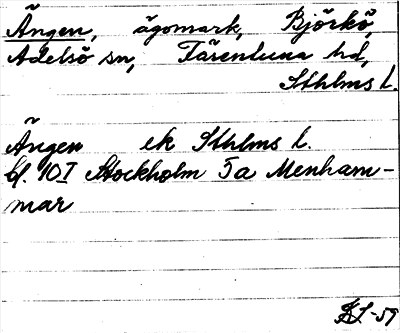 Ängen, ägomark, Björkö,
Adelsö sn, Färentuna hd,
Sthlms l.
Ängen ek Sthlms l.
bl. 10 I Stockholm 5a Menham-
mar
-59